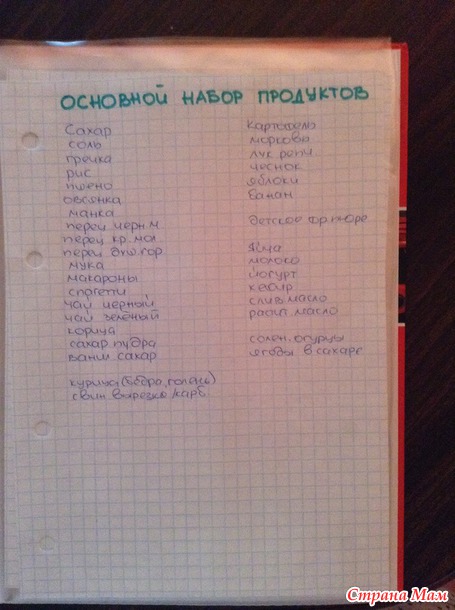 ОСНОВНОЙ НАБОР ПРОДУКТОВ
Сахар
соль
гречка
рис
пшено
овсянка
манка
перец черн.м.
перец кр.мол
перец душ.гор.
мука
макароны
спагети
чай черный
чай зелёный
корица
сахар.пудра
ванил.сахар
курица(бедро,голень)
свин.вырезка/карб.
Картофель
морковь
лук репч
чеснок
яблоки
банан
детское фр.пюре
Яйца
молоко
йогурт
кефир
слив.масло
раст.масло
солен.огурцы
ягоды в сахаре
Страна Мам